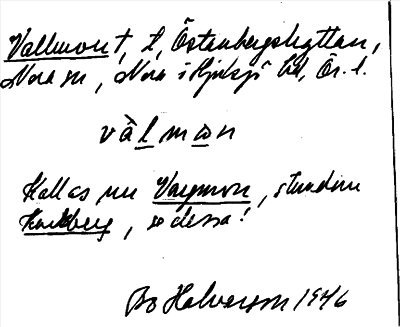 Vallmon t, t, Östanbergshyttan,
Nora sn, Nora i Hjulsjö bd, Ör. l.
vàlmon
Kallas nu Vagnmon, stundom
Karlberg, se dessa!
Bo Halvarson 1946